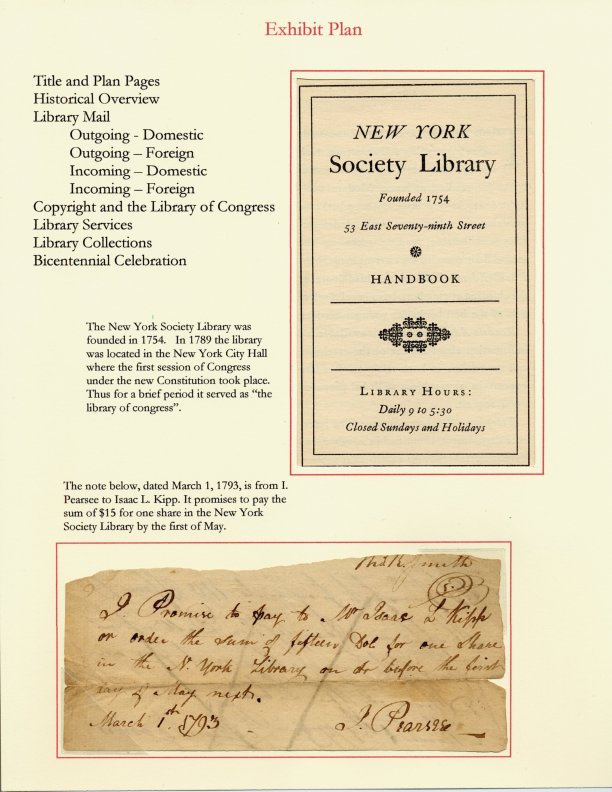 Exhibit Plan
Title and Plan Pages
Historical Overview
Library Mail
Outgoing - Domestic
Outgoing – Foreign
Incoming – Domestic
Incoming – Foreign
Copyright and the Library of Congress
Library Services
Library Collections
Bicentennial Celebration
NEW YORK
Society Library
Founded 1754
53 East Seventy-ninth Street
HANDBOOK
LIBRARY HOURS:
Daily 9 to 5:30
Closed Sundays and Holidays
The New York Society Library was
founded in 1754. In 1789 the library
was located in the New York City Hall
where the first session of Congress
under the new Constitution took place.
Thus for a brief period it served as “the
library of congress”.
The note below, dated March 1, 1793, is from I.
Pearsee to Isaac L. Kipp. It promises to pay the
sum of $15 for one share in the New York
Society Library by the first of May.
Smith
I Promise to pay to Mr Isaac L Kipp
or order the sum of fifteen Dol for one Share
in the N. York Library on or before the first
day of May next.
March 1st 1793
I. Pearsee